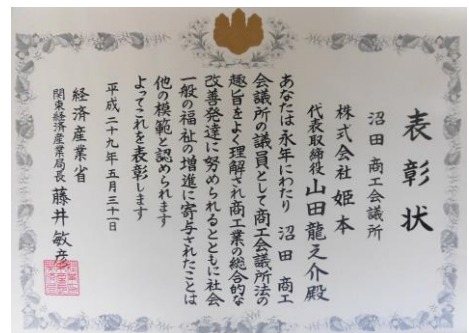 表彰状
沼田商工会議所
株式会社 姫本
代表取締役 山田龍之介殿
あなたは永年にわたり 沼田 商工
会議所の議員として商工会議所法の
趣旨をよく理解され商工業の総合的な
改善発達に努められるとともに社会
一般の福祉の増進に寄与されたことは
他の模範と認められます
よってこれを表彰します
平成二十九年五月三十一日
経済産業省
関東経済産業局長 藤井敏彦